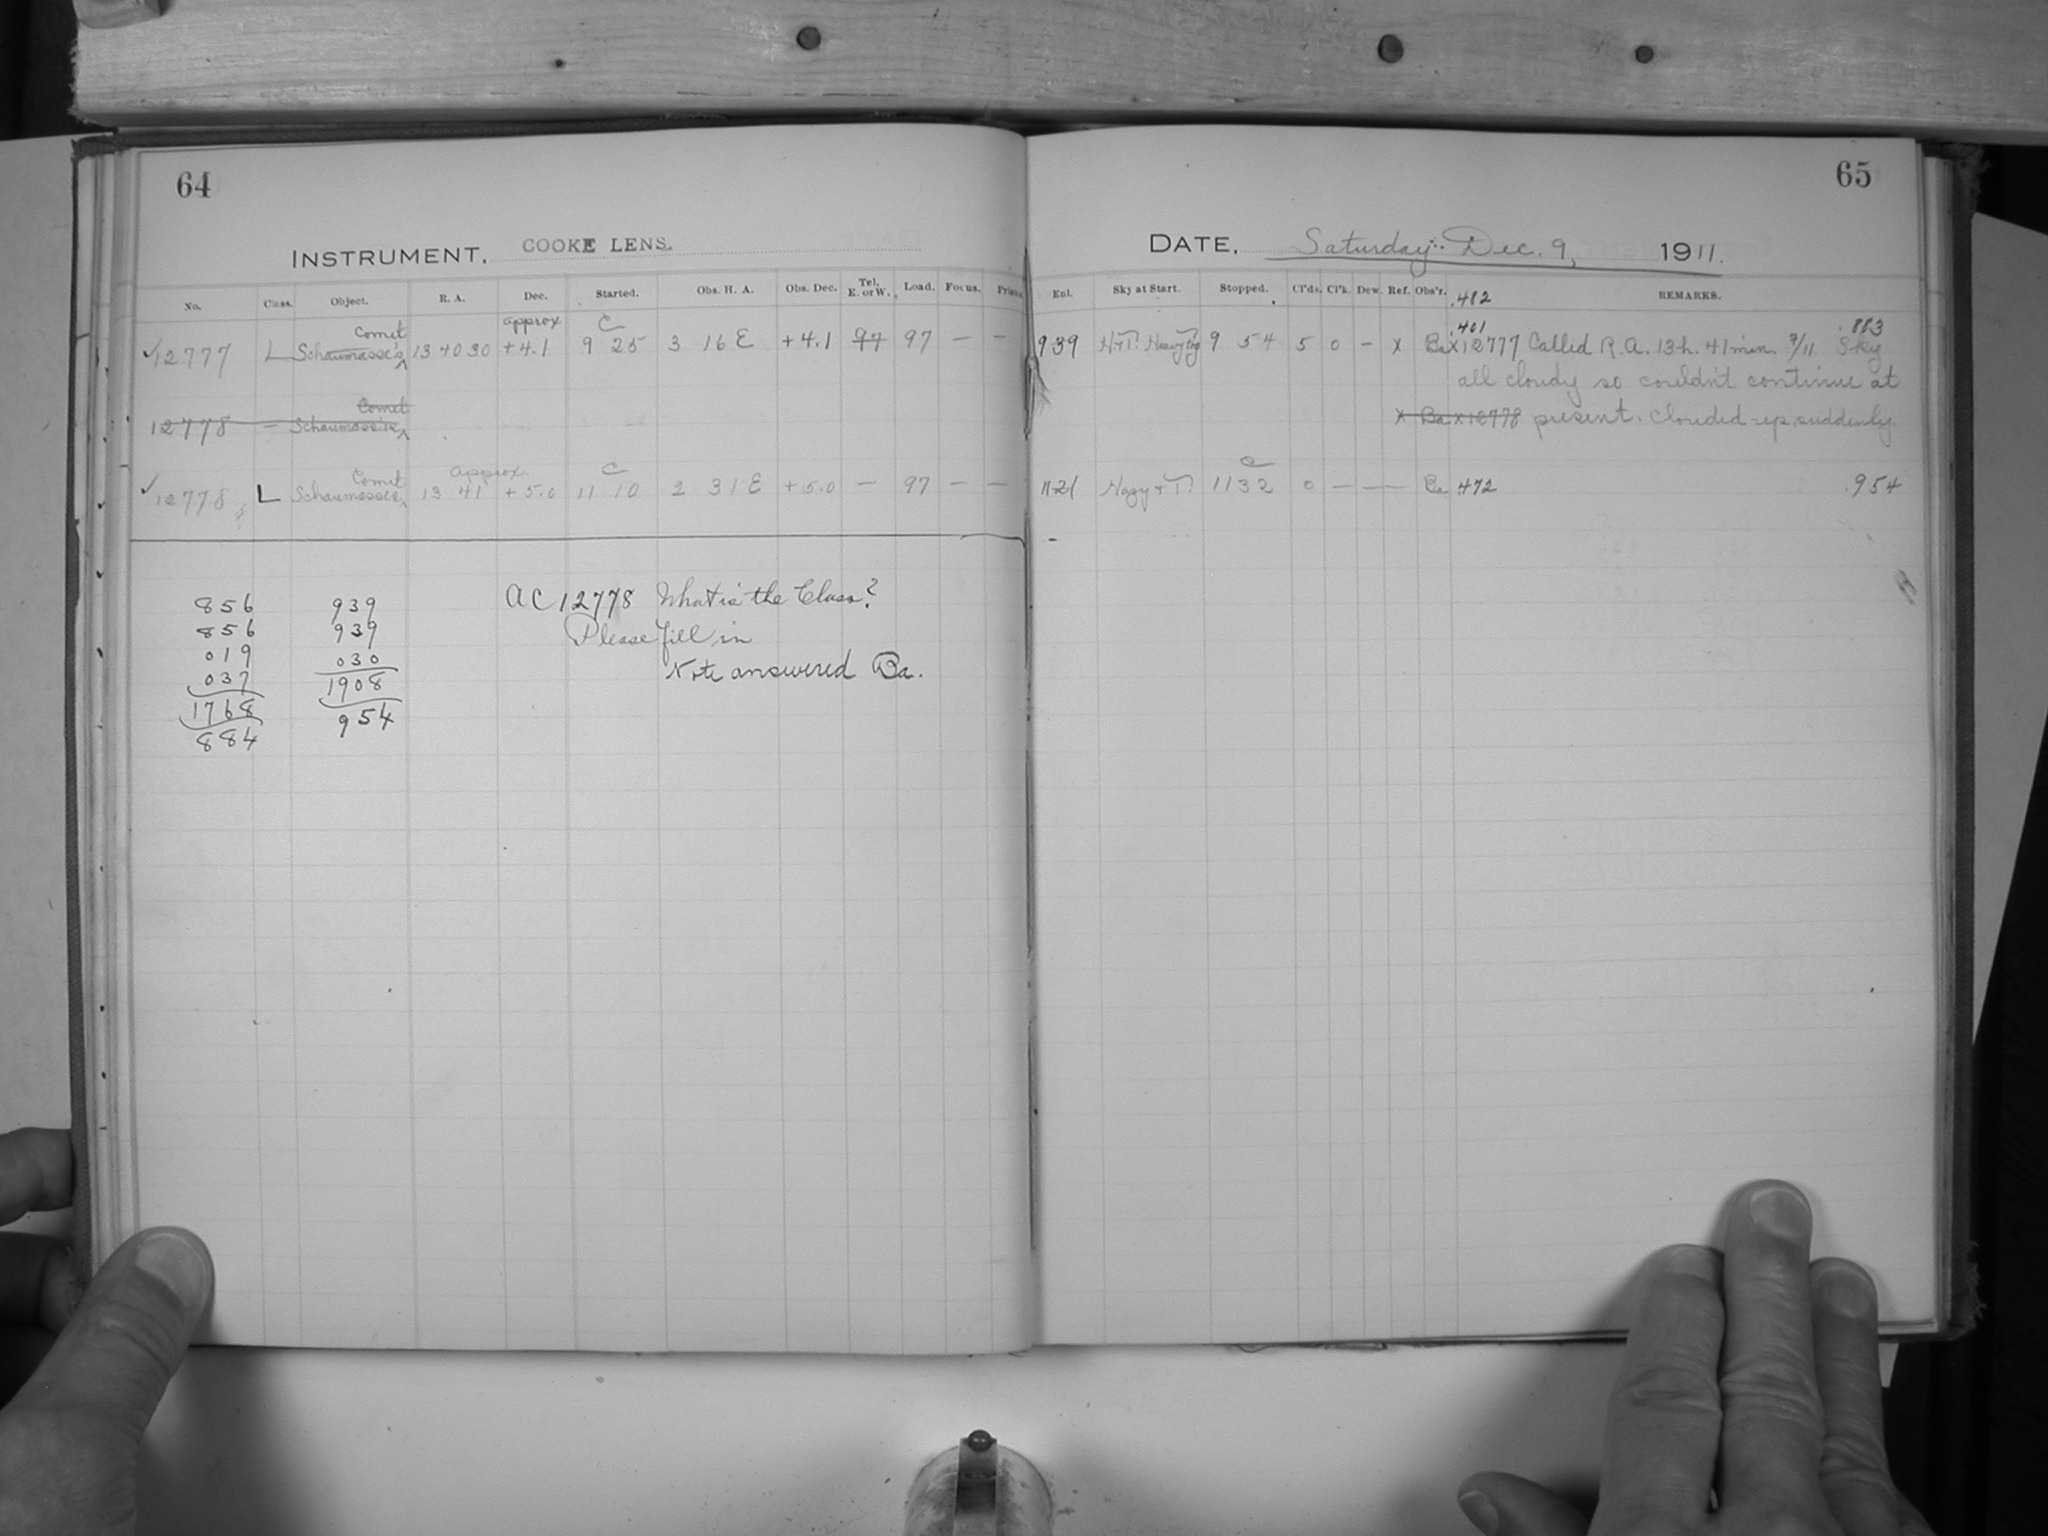 64
INSTRUMENT. COOKE LENS.
No. Class. Object. R. A. Dec. Started. Obs. H. A. Obs. Dec. Tel. E. or W. Load. Focus. Prism.
Comet approx C
✓12777 L Schaumasse's 13 40 30 +4.1 9 25 3 16 E +4.1 97 97 — —
Comet
12778 — Schaumasse's
Comet approx. C
✓12778 L Schaumasse's 13 41 +5.0 11 10 2 31 E +5.0 — 97 — —
856 939 AC 12778 What is the Class?
856 939 Please fill in
019 030 Note answered Ba.
037 1908
1768 954
884
65
DATE, Saturday Dec. 9, 1911.
Enl. Sky at Start. Stopped. Cl'ds. Cl'k. Dew. Ref. Obs'r. .482 REMARKS.
.401 .883
939 H+T. Heavy 9 54 5 0 – x Ba x12777 Called R. A. 13h. 41 min. Sky
all cloudy so couldn't continue at
x Ba x12778 present. Clouded up suddenly.
C
11-21 Hazy + T. 11 32 0 — — — Ba .472 .954